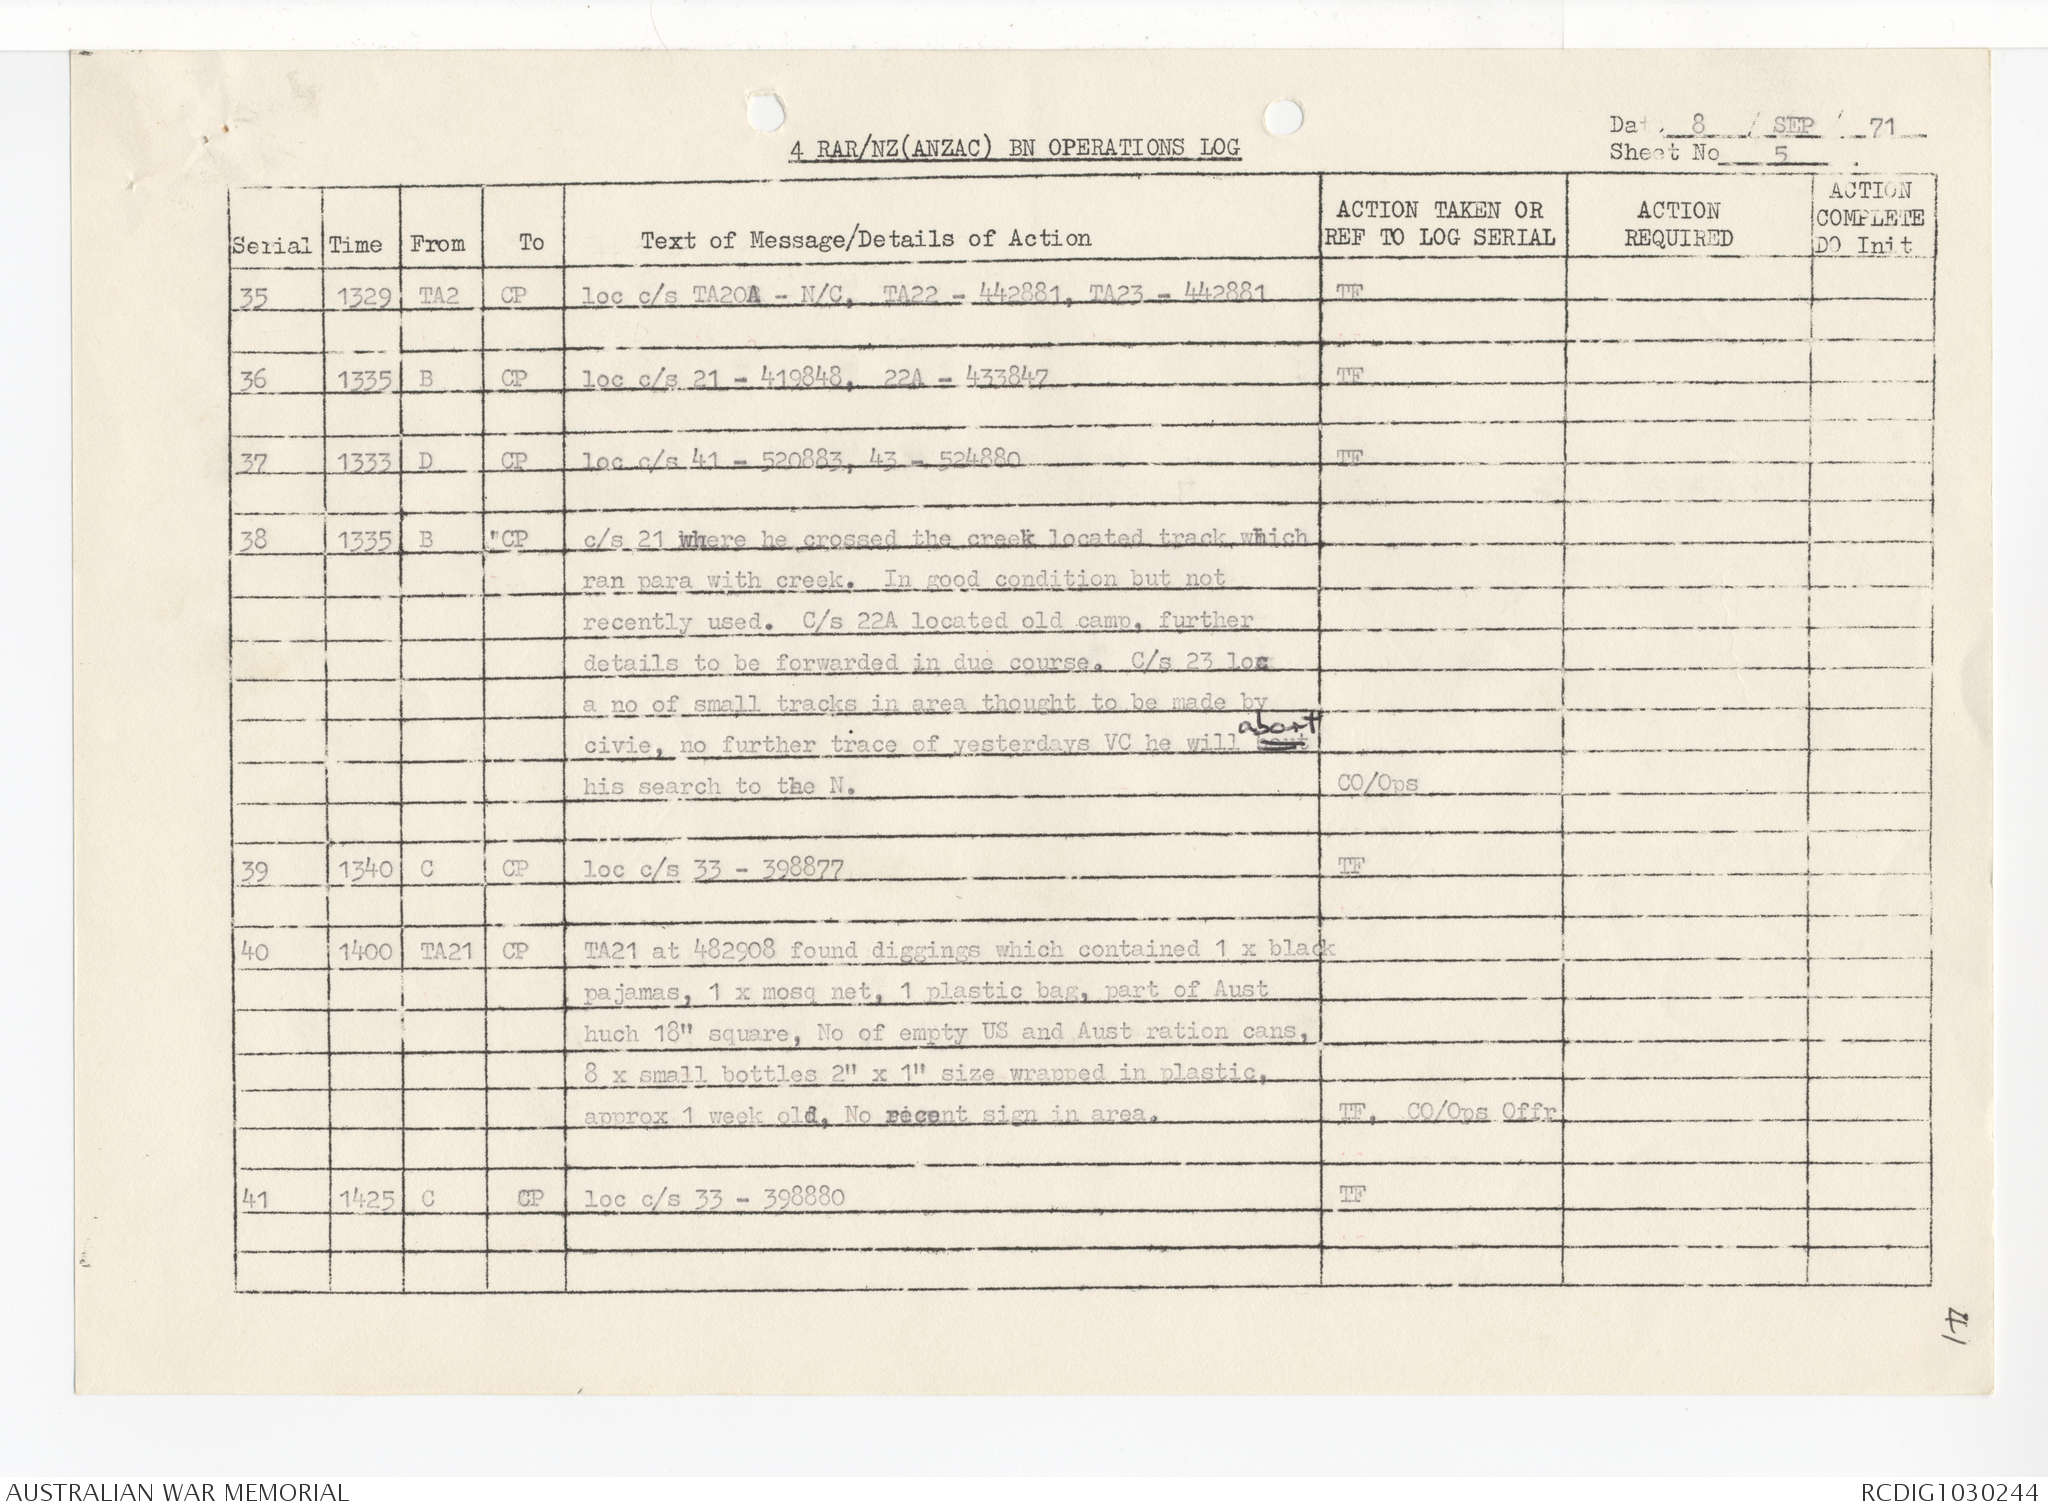 4 RAR/NZ(ANZAC) BN OPERATIONS LOG
Date 8 / SEP / 71
Sheet No 5
Serial Time From To Text of Message/Details of Action ACTION TAKEN OR REF TO LOG SERIAL ACTION REQUIRED ACTION COMPLETE DO Init
35 1329 TA2 CP loc c/s TA20A - N/C, TA22 - 442881, TA23 - 442881 TF
36 1335 B CP loc c/s 21 - 419848, 22A - 433847 TF
37 1333 D CP loc c/s 41 - 520883, 43 - 524880 TF
38 1335 B "CP c/s 21 where he crossed the creek located track which
ran para with creek. In good condition but not
recently used. C/s 22A located old camp, further
details to be forwarded in due course. C/s 23 loc
a no of small tracks in area thought to be made by
civie, no further trace of yesterdays VC he will abort
his search to the N. CO/Ops
39 1340 C CP loc c/s 33 - 398877 TF
40 1400 TA21 CP TA21 at 482908 found diggings which contained 1 x black
pajamas, 1 x mosq net, 1 plastic bag, part of Aust
huch 18" square, No of empty US and Aust ration cans,
8 x small bottles 2" x 1" size wrapped in plastic,
approx 1 week old, No recent sign in area. TF, CO/Ops Offr
41 1425 C CP loc c/s 33 - 398880 TF
41
AUSTRALIAN WAR MEMORIAL
RCDIG1030244